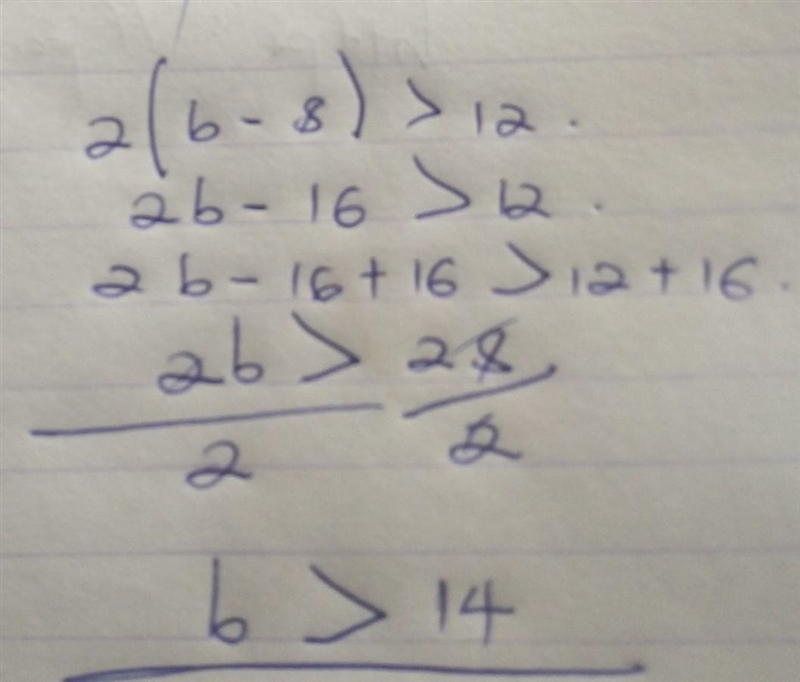 2(b - 8) > 12.
2b - 16 > 12.
2b - 16 + 16 > 12 + 16.
2b > 28
2 2
b > 14